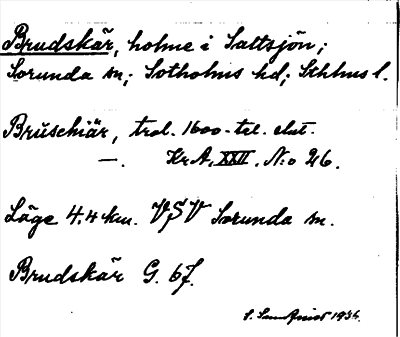 Brudskär, holme i Saltsjön;
Sorunda sn; Sotholms hd; Sthlms l.
Brŭschiär, trol. 1600-tal. slut.
—. Kr.A. XXII. N:o 26.
Läge 4.4 km. VSV Sorunda sn.
Brudskär G. 67.
S. 1936.